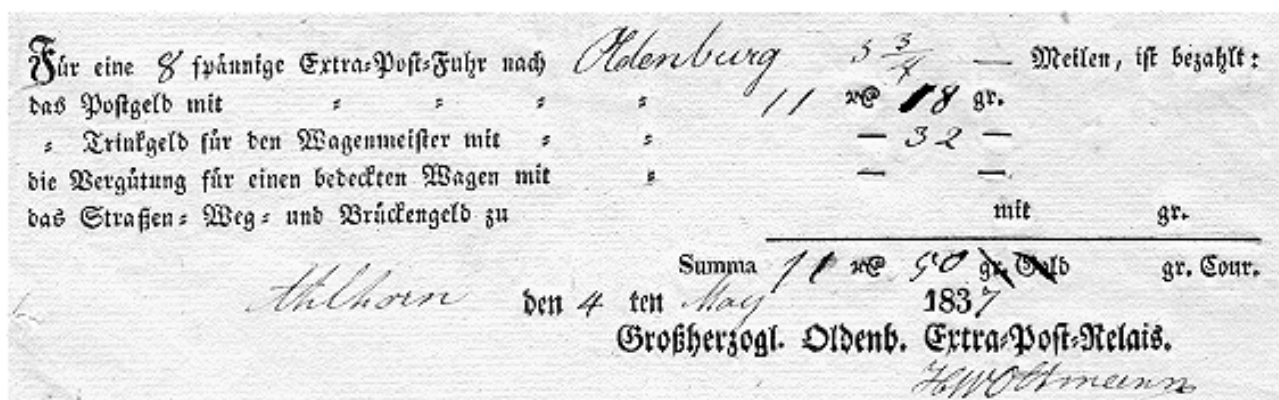 Für eine 8 spännige Extra-Post-Fuhr nach Oldenburg 3 3/4 — Meilen, ist bezahlt:
das Postgeld mit = = = = 11 r₰ 18 gr.
= Trinkgeld für den Wagenmeister mit = = — 32 —
die Vergütung für einen bedeckten Wagen mit = — —
das Straßen= Weg= und Brückengeld zu mit gr.
Summa 11 r₰ 50 gr. Gold gr. Cour.
Ahlhorn den 4 ten May 1837
Großherzogl. Oldenb. Extra=Post=Relais.